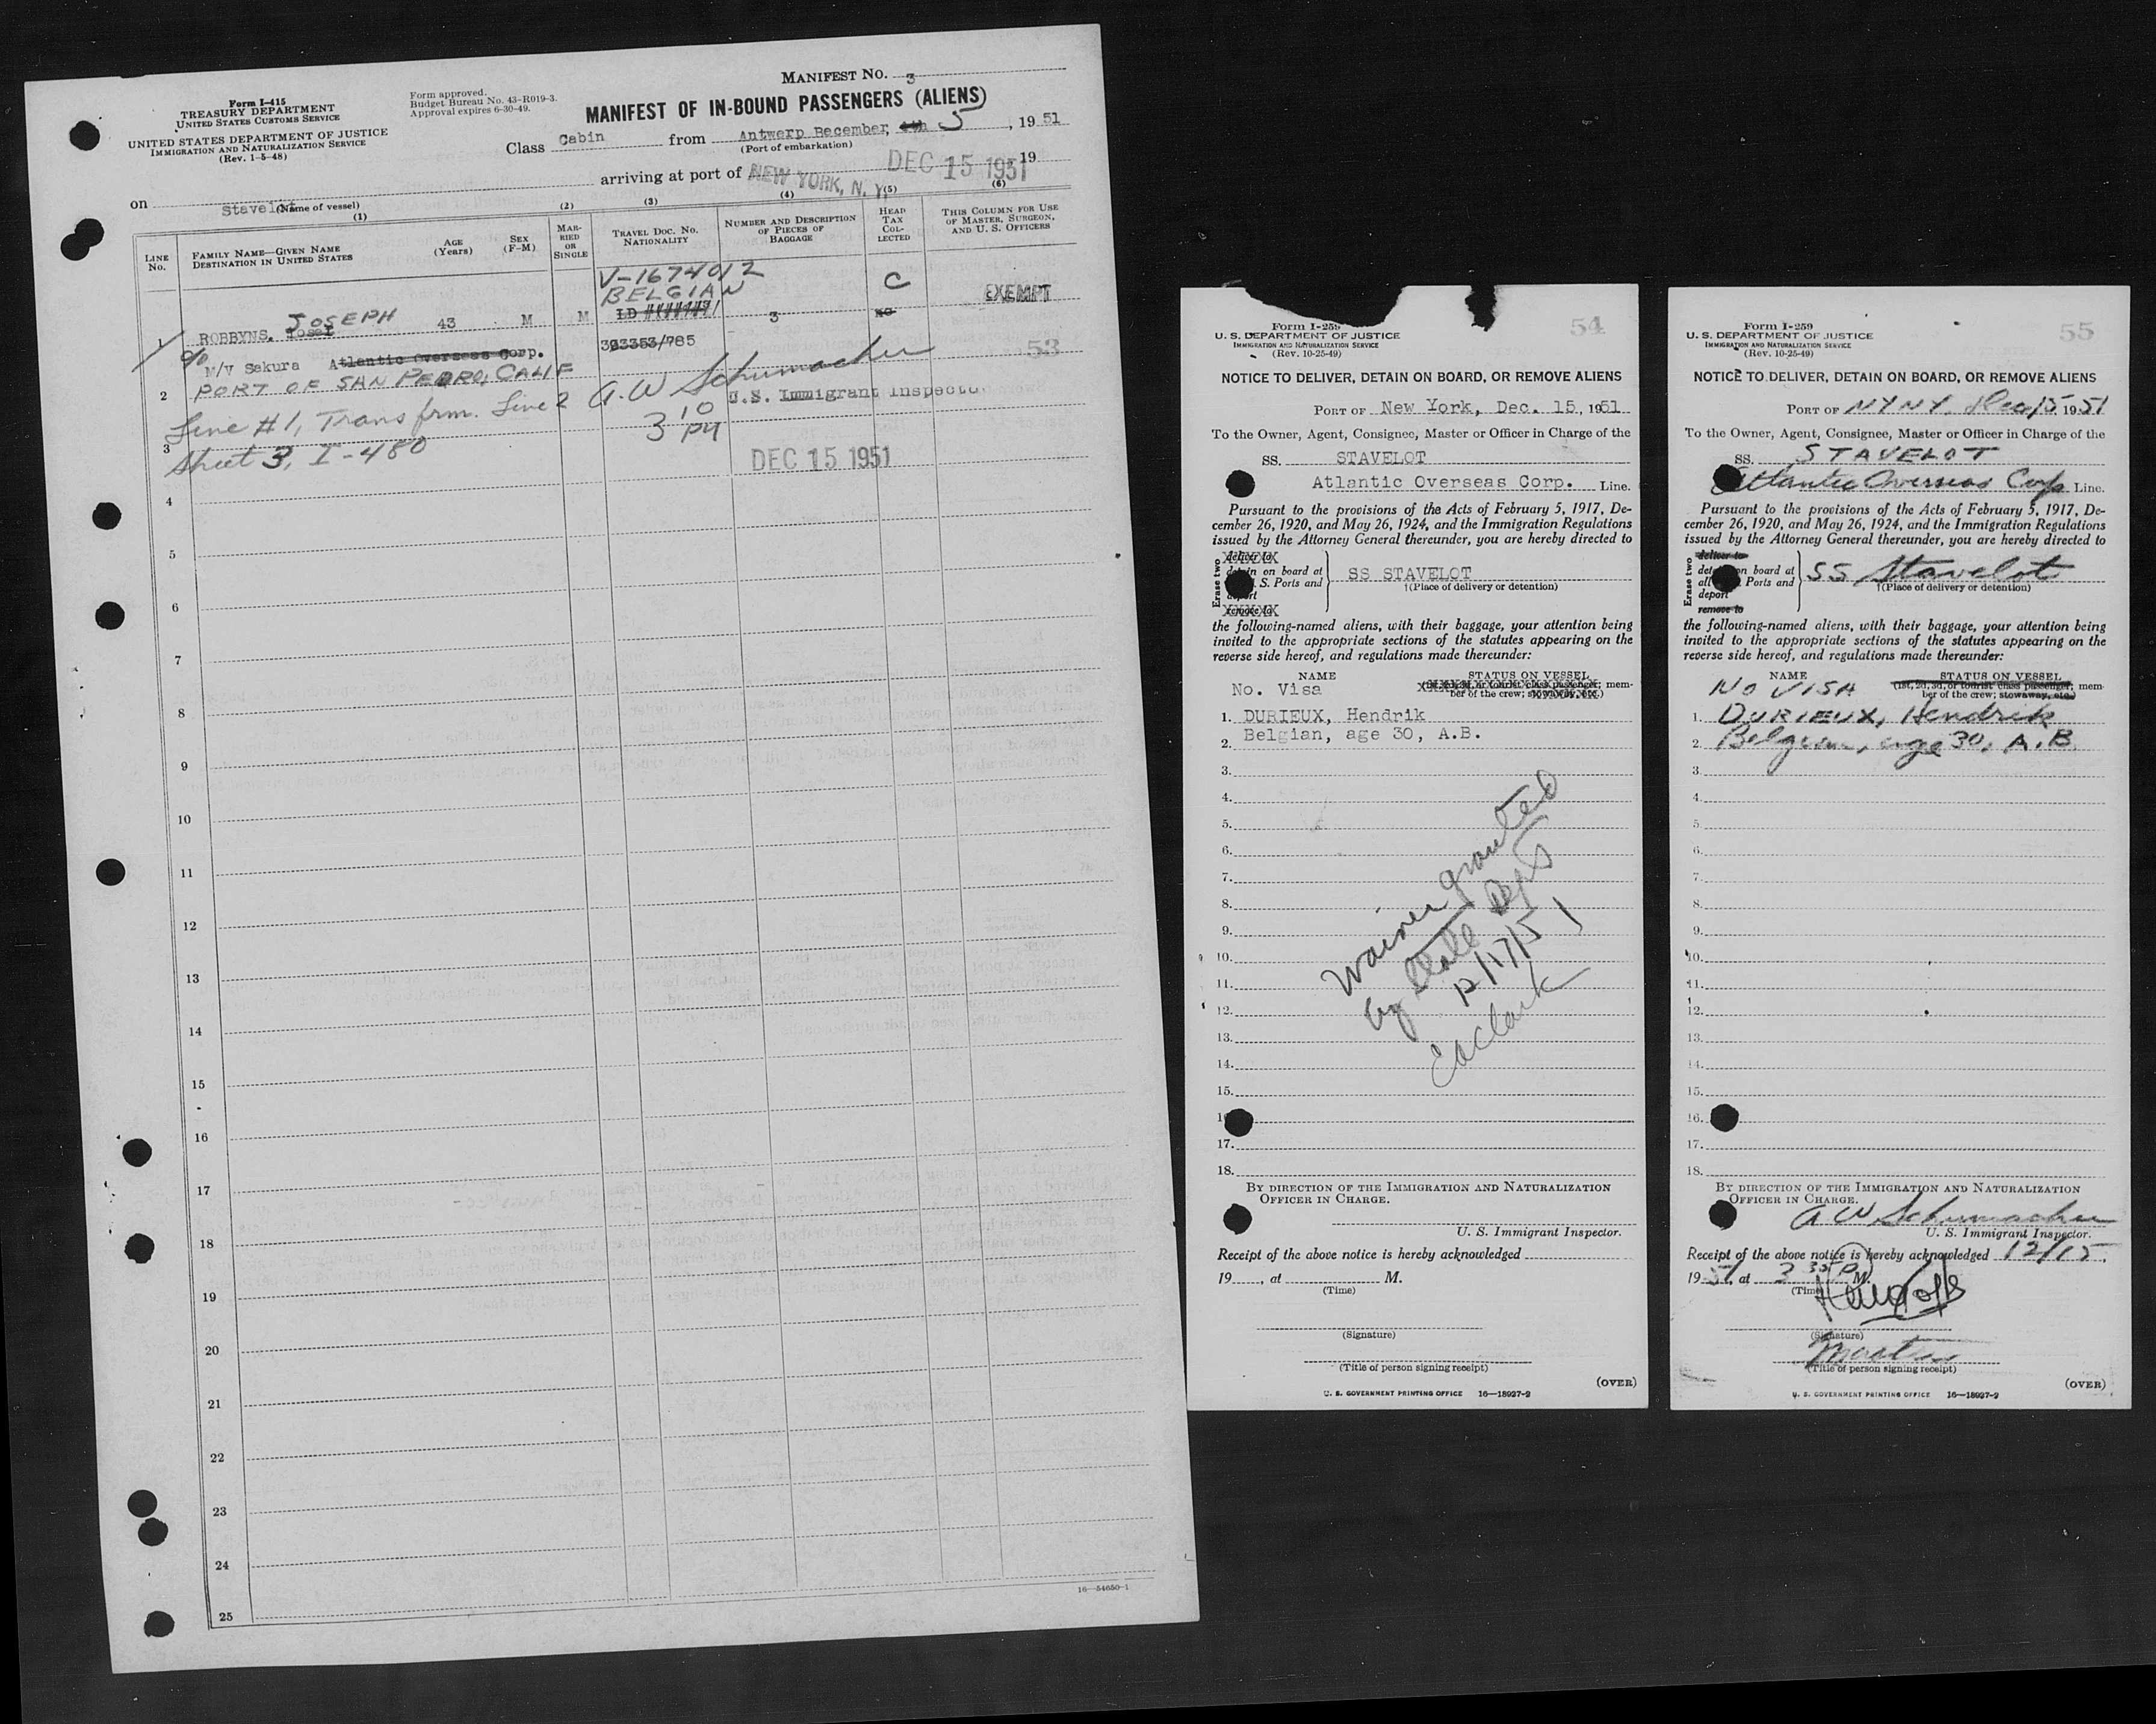 MANIFEST NO. 3
Form I-415
TREASURY DEPARTMENT
UNITED STATES CUSTOMS SERVICE
UNITED STATES DEPARTMENT OF JUSTICE
IMMIGRATION AND NATURALIZATION SERVICE
(Rev. 1-5-48)
Form approved.
Budget Bureau No. 43-R019-3.
Approval expires 6-30-49.
MANIFEST OF IN-BOUND PASSENGERS (ALIENS)
Class Cabin from Antwerp December, 4th 5, 19 51
(Port of embarkation)
on Stavelot arriving at port of NEW YORK, N. Y. DEC 15 1951, 19
(Name of vessel)
(1) (2) (3) (4) (5) (6)
LINE No.
FAMILY NAME—GIVEN NAME
DESTINATION IN UNITED STATES
AGE (Years)
SEX (F-M)
MARRIED OR SINGLE
TRAVEL DOC. NO. NATIONALITY
NUMBER AND DESCRIPTION OF PIECES OF BAGGAGE
HEAD TAX COLLECTED
THIS COLUMN FOR USE OF MASTER, SURGEON, AND U. S. OFFICERS
V-1674012
BELGIAN C EXEMPT
JOSEPH
1 ROBBYNS. Josef 43 M M 3 no
c/o M/V Sakura Atlantic Overseas Corp. 303353/785 53
2 PORT OF SAN PEDRO, CALIF
A.W Schumacher
U.S. Immigrant Inspector
Line #1, Trans frm. Line 2 3 10 PM
3 Sheet 3, I-480
DEC 15 1951
4
5
6
7
8
9
10
11
12
13
14
15
16
17
18
19
20
21
22
23
24
25
16—54650-1
Form I-259 54
U. S. DEPARTMENT OF JUSTICE
IMMIGRATION AND NATURALIZATION SERVICE
(Rev. 10-25-49)
NOTICE TO DELIVER, DETAIN ON BOARD, OR REMOVE ALIENS
PORT OF New York, Dec. 15, 1951
To the Owner, Agent, Consignee, Master or Officer in Charge of the
SS. STAVELOT
Atlantic Overseas Corp. Line.
Pursuant to the provisions of the Acts of February 5, 1917, De-
cember 26, 1920, and May 26, 1924, and the Immigration Regulations
issued by the Attorney General thereunder, you are hereby directed to
Erase two
deliver to
detain on board at
S. Ports and
deport
remove to
SS STAVELOT
†(Place of delivery or detention)
the following-named aliens, with their baggage, your attention being
invited to the appropriate sections of the statutes appearing on the
reverse side hereof, and regulations made thereunder:
NAME STATUS ON VESSEL
(1st, 2d, 3d, or tourist class passenger; mem-
ber of the crew; stowaway, etc.)
No. Visa
1. DURIEUX, Hendrik
2. Belgian, age 30, A.B.
3.
4.
5.
6.
7.
8.
9.
10.
11.
12.
13.
14.
15.
16
17.
18.
Waiver granted
by State Dept
12/17/51
BY DIRECTION OF THE IMMIGRATION AND NATURALIZATION
OFFICER IN CHARGE.
U. S. Immigrant Inspector.
Receipt of the above notice is hereby acknowledged
19, at M.
(Time)
(Signature)
(Title of person signing receipt)
(OVER)
U. S. GOVERNMENT PRINTING OFFICE 16—18927-2
Form I-259 55
U. S. DEPARTMENT OF JUSTICE
IMMIGRATION AND NATURALIZATION SERVICE
(Rev. 10-25-49)
NOTICE TO DELIVER, DETAIN ON BOARD, OR REMOVE ALIENS
PORT OF NYNY. Dec 15 1951
To the Owner, Agent, Consignee, Master or Officer in Charge of the
SS. STAVELOT
Atlantic Overseas Corp Line.
Pursuant to the provisions of the Acts of February 5, 1917, De-
cember 26, 1920, and May 26, 1924, and the Immigration Regulations
issued by the Attorney General thereunder, you are hereby directed to
Erase two
deliver to
on board at
all Ports and
deport
remove to
SS Stavelot
†(Place of delivery or detention)
the following-named aliens, with their baggage, your attention being
invited to the appropriate sections of the statutes appearing on the
reverse side hereof, and regulations made thereunder:
NAME STATUS ON VESSEL
(1st, 2d, 3d, or tourist class passenger; mem-
ber of the crew; stowaway, etc.)
NO VISA
1. DURIEUX, Hendrik
2. Belgian, age 30, A.B.
3.
4.
5.
6.
7.
8.
9.
10.
11.
12.
13.
14.
15.
16.
17.
18.
BY DIRECTION OF THE IMMIGRATION AND NATURALIZATION
OFFICER IN CHARGE.
A W Schumacher
U. S. Immigrant Inspector.
Receipt of the above notice is hereby acknowledged 12/15,
1951, at 3 35 P M.
(Time)
(Signature)
Master
(Title of person signing receipt)
(OVER)
U. S. GOVERNMENT PRINTING OFFICE 16—18927-2